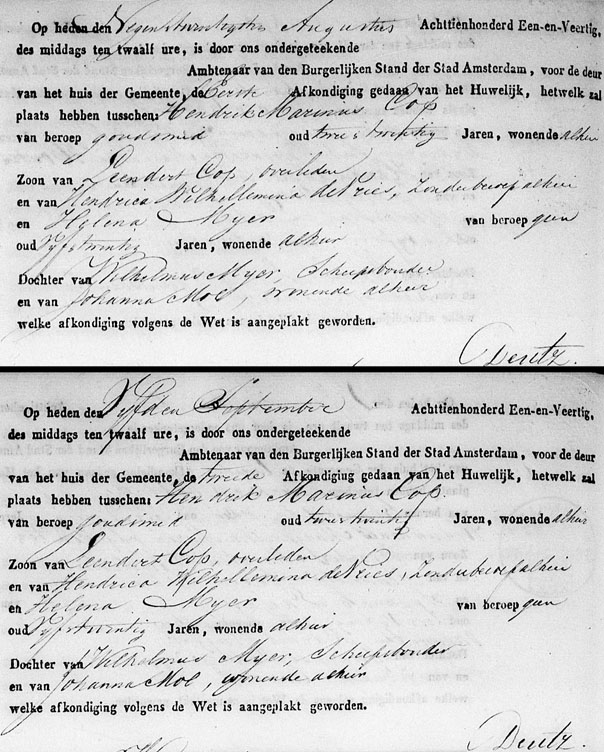 Op heden den Negenentwintigsten Augustus Achttienhonderd Een-en-Veertig,
des middags ten twaalf ure, is door ons ondergeteekende
Ambtenaar van den Burgerlijken Stand der Stad Amsterdam, voor de deur
van het huis der Gemeente, de Eerste Afkondiging gedaan van het Huwelijk, hetwelk zal
plaats hebben tusschen: Hendrik Marinus Cop
van beroep goudsmid oud twee & twintig Jaren, wonende alhier
Zoon van Leendert Cop, overleden
en van Hendrica Wilhellemina de Vries, zonder beroep alhier
en Hylena Myer van beroep geen
oud Vyf & twintig Jaren, wonende alhier
Dochter van Wilhelmus Myer, Scheepsbouder
en van Johanna Mol, wonende alhier
welke afkondiging volgens de Wet is aangeplakt geworden.
Deutz.
Op heden den Vyfden September Achttienhonderd Een-en-Veertig,
des middags ten twaalf ure, is door ons ondergeteekende
Ambtenaar van den Burgerlijken Stand der Stad Amsterdam, voor de deur
van het huis der Gemeente, de tweede Afkondiging gedaan van het Huwelijk, hetwelk zal
plaats hebben tusschen: Hendrik Marinus Cop.
van beroep goudsmid oud twee & twintig Jaren, wonende alhier
Zoon van Leendert Cop, overleden
en van Hendrica Wilhellemina de Vries, zonder beroep alhier
en Helena Myer van beroep geen
oud Vyf & twintig Jaren, wonende alhier
Dochter van Wilhelmus Myer, Scheepsbouder
en van Johanna Mol, wonende alhier
welke afkondiging volgens de Wet is aangeplakt geworden.
Deutz